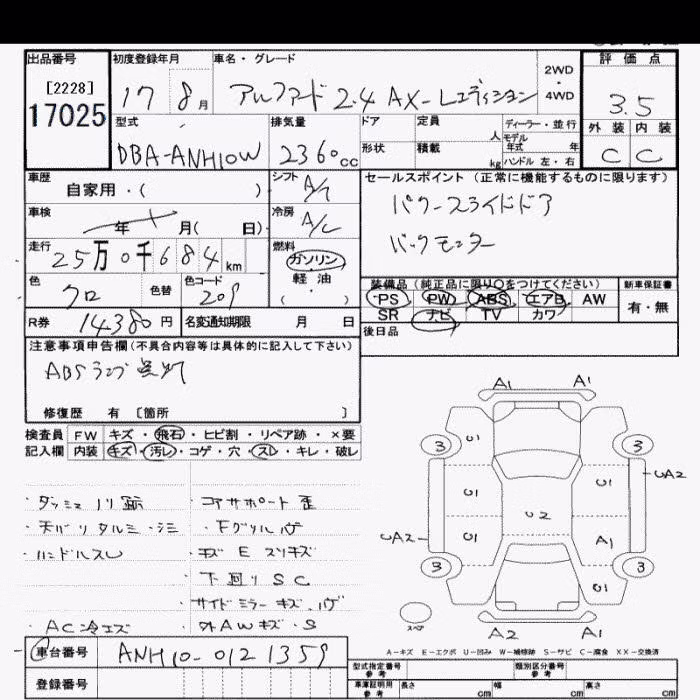 出品番号 初度登録年月 車名・グレード 評価点
[2228] 17025
17 8月 アルファード 2.4 AX-Lエディション 2WD・4WD 3.5
型式 排気量 ドア 定員 人 ディーラー・並行 外装 内装
DBA-ANH10W 2360cc 形状 積載 kg モデル年式 年 ハンドル 左・右 C C
車歴 自家用・( ) シフト A/T セールスポイント(正常に機能するものに限ります)
車検 年 月( 日) 冷房 A/C パワースライドドア
走行 25万0千684km 燃料 ガソリン・軽油・( ) バックモニター
色 クロ 色替 色コード 209
装備品(純正品に限り○をつけてください) 新車保証書
PS PW ABS エアB AW 有・無
SR ナビ TV カワ
R券 14380円 名変通知期限 月 日 後日品
注意事項申告欄(不具合内容等は具体的に記入して下さい)
ABSランプ点灯
修復歴 有 [箇所 ]
検査員 FW キズ・飛石・ヒビ割・リペア跡・×要
記入欄 内装 キズ・汚レ・コゲ・穴・スレ・キレ・破レ
・ダッシュノリ跡 ・コアサポート歪
・天バリタルミ・シミ ・Fグリルハゲ
・ハンドルスレ ・キズ E スリキズ
・下回りSC
・サイドミラーキズ、ハゲ
・AC冷エズ ・外AWキズ・S
A1 A1
3 U1 3
U1 U1 UA2
U2
UA2 U1 A1
3 U1 3
スペア
A2 A1
A-キズ E-エクボ U-凹み W-補修跡 S-サビ C-腐食 XX-交換済
車台番号 ANH10-0121359
登録番号
型式指定番号 参考 類別区分番号 参考
車庫証明用 参考 長さ cm 幅 cm 高さ cm